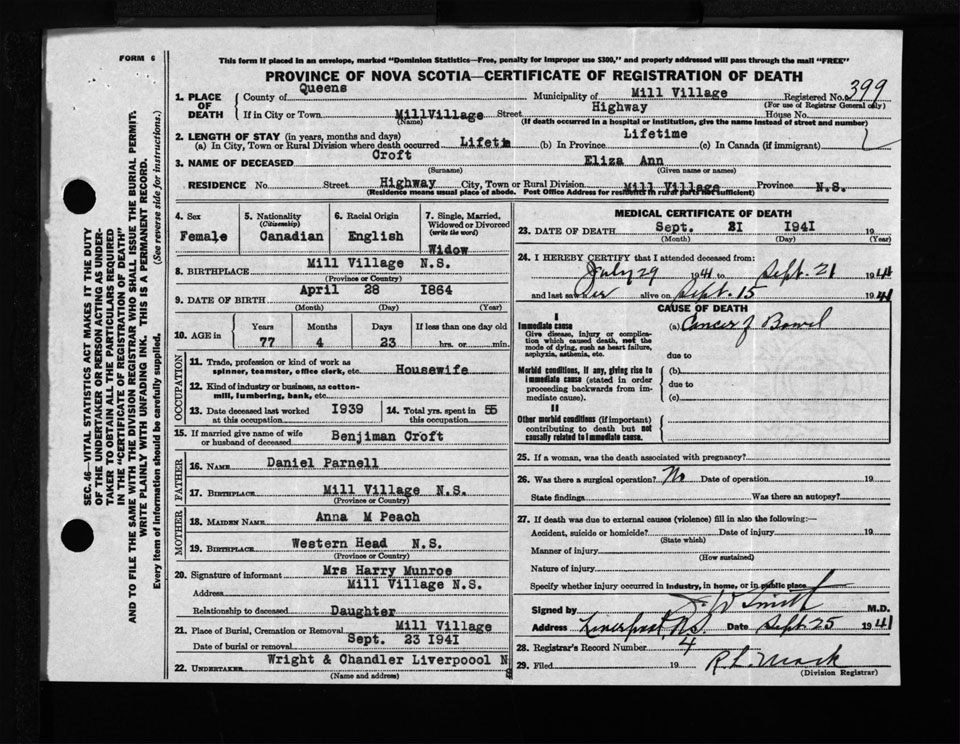 FORM 6
This form if placed in an envelope, marked "Dominion Statistics—Free, penalty for improper use $300," and properly addressed will pass through the mail "FREE"
PROVINCE OF NOVA SCOTIA—CERTIFICATE OF REGISTRATION OF DEATH
1. PLACE OF DEATH County of Queens Municipality of Mill Village Registered No. 399
(For use of Registrar General only)
If in City or Town MillVillage Street Highway House No.
(Name) (If death occurred in a hospital or institution, give the name instead of street and number)
2. LENGTH OF STAY (in years, months and days)
(a) In City, Town or Rural Division where death occurred Lifetim (b) In Province Lifetime (c) In Canada (if immigrant)
3. NAME OF DECEASED Croft Eliza Ann
(Surname) (Given name or names)
RESIDENCE No. Street Highway City, Town or Rural Division Mill Village Province N.S.
(Residence means usual place of abode. Post Office Address for residents in rural parts not sufficient)
4. Sex Female
5. Nationality (Citizenship) Canadian
6. Racial Origin English
7. Single, Married, Widowed or Divorced (write the word) Widow
8. BIRTHPLACE Mill Village N.S.
(Province or Country)
9. DATE OF BIRTH April 28 1864
(Month) (Day) (Year)
10. AGE in Years Months Days If less than one day old
77 4 23 hrs. or min.
OCCUPATION
11. Trade, profession or kind of work as spinner, teamster, office clerk, etc. Housewife
12. Kind of industry or business, as cotton-mill, lumbering, bank, etc.
13. Date deceased last worked at this occupation 1939
14. Total yrs. spent in this occupation 55
15. If married give name of wife or husband of deceased Benjiman Croft
FATHER
16. NAME Daniel Parnell
17. BIRTHPLACE Mill Village N.S.
(Province or Country)
MOTHER
18. MAIDEN NAME Anna M Peach
19. BIRTHPLACE Western Head N.S.
(Province or Country)
20. Signature of informant Mrs Harry Munroe
Address Mill Village N.S.
Relationship to deceased Daughter
21. Place of Burial, Cremation or Removal Mill Village
Date of burial or removal Sept. 23 1941
22. UNDERTAKER Wright & Chandler Liverpoool N
(Name and address)
MEDICAL CERTIFICATE OF DEATH
23. DATE OF DEATH Sept. 21 1941 19
(Month) (Day) (Year)
24. I HEREBY CERTIFY that I attended deceased from:
July 29 1941 to Sept. 21 1941
and last saw her alive on Sept. 15 1941
CAUSE OF DEATH
I
Immediate cause
Give disease, injury or complication which caused death, not the mode of dying, such as heart failure, asphyxia, asthenia, etc.
(a) Cancer of Bowel
due to
Morbid conditions, if any, giving rise to immediate cause (stated in order proceeding backwards from immediate cause).
(b)
due to
(c)
II
Other morbid conditions (if important) contributing to death but not causally related to immediate cause.
25. If a woman, was the death associated with pregnancy?
26. Was there a surgical operation? No Date of operation 19
State findings Was there an autopsy?
27. If death was due to external causes (violence) fill in also the following:—
Accident, suicide or homicide? Date of injury 19
(State which)
Manner of injury
(How sustained)
Nature of injury
Specify whether injury occurred in industry, in home, or in public place
Signed by J W Smith M.D.
Address Liverpool, N.S. Date Sept. 25 1941
28. Registrar's Record Number 24
29. Filed 19 R.L. Mack
(Division Registrar)
SEC. 46—VITAL STATISTICS ACT MAKES IT THE DUTY
OF THE UNDERTAKER OR PERSON ACTING AS UNDER-
TAKER TO OBTAIN ALL THE PARTICULARS REQUIRED
IN THE "CERTIFICATE OF REGISTRATION OF DEATH"
AND TO FILE THE SAME WITH THE DIVISION REGISTRAR WHO SHALL ISSUE THE BURIAL PERMIT.
WRITE PLAINLY WITH UNFADING INK. THIS IS A PERMANENT RECORD.
Every item of information should be carefully supplied. (See reverse side for instructions.)